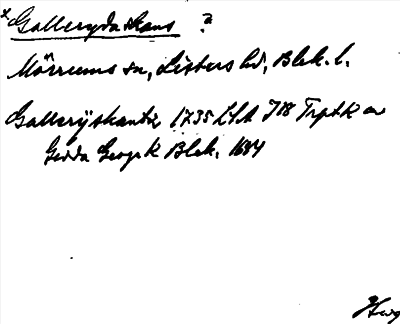 *Galleryda skans ?
Mörrums sn, Listers hd, Blek. l.
Galleryskantz 1735 LSA J18 Trptk av
Gedda Geogr k Blek. 1684